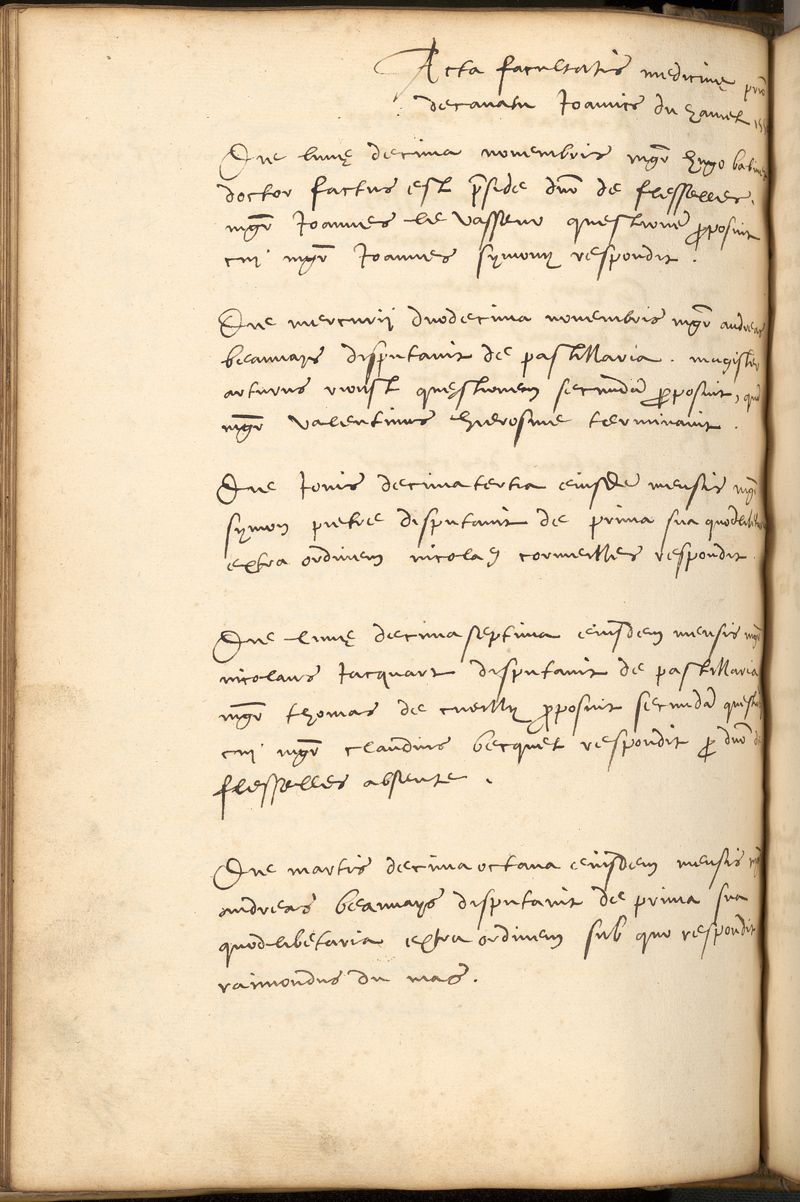 Acta facultatis medicinę
decanatu Joannis du hamel
Die lunę decima novembris mgr̄ hugo
doctor factus est p̄side dn̄o de flesselles.
mgr̄ Joannes le vasseur questionē proposuit
cui mgr̄ Joannes symon respondit.
Die mercurij duodecima novembris mgr̄ andreas
beauuays disputauit de pastillaria. magister
arturus questionem secundā proposuit,
mgr̄ valentinus hierosme terminauit.
Die Jovis decima tertia eiusdē mensis mgr̄
symon pietre disputauit de prima sua
extra ordinem nicolaus cormeilles respondit.
Die lunę decima septima eiusdem mensis mgr̄
nicolaus Jacquart disputauit de pastillaria
mgr̄ thomas de proposuit secundā
cui mgr̄ claudius becquet respondit pro dn̄o de
flesselles absente.
Die martis decima octaua eiusdem mensis
andreas beauuays disputauit de prima sua
quodlibetaria extra ordinem sub quo respondit
raimondus du mas.